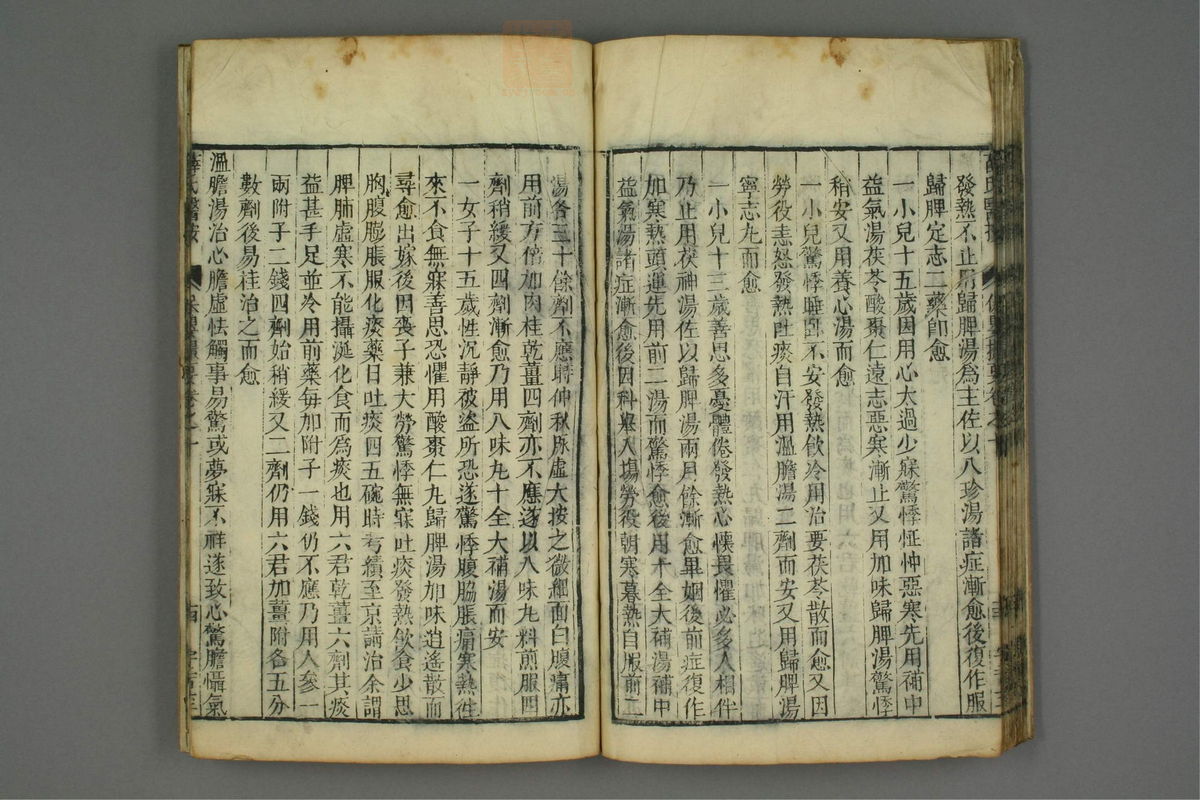 發熱不止用歸脾湯為主佐以八珍湯諸症漸愈後復作服
歸脾定志二藥即愈
一小兒十五歲因用心太過少寐驚悸怔忡惡寒先用補中
益氣湯茯苓酸棗仁遠志惡寒漸止又用加味歸脾湯驚悸
稍安又用養心湯而愈
一小兒驚悸睡臥不安發熱飲冷用治要茯苓散而愈又因
勞役恚怒發熱吐痰自汗用溫膽湯二劑而安又用歸脾湯
寧志丸而愈
一小兒十三歲善思多憂體倦發熱心懷畏懼必多人相伴
乃止用茯神湯佐以歸脾湯兩月餘漸愈畢姻後前症復作
加寒熱頭運先用前二湯而驚悸愈後用十全大補湯補中
益氣湯諸症漸愈後因科舉入場勞役朝寒暮熱自服前二
湯各三十餘劑不應時仲秋脉虛大按之微細面白腹痛亦
用前方倍加肉桂乾薑四劑亦不應遂以八味丸料煎服四
劑稍緩又四劑漸愈乃用八味丸十全大補湯而安
一女子十五歲性沉靜被盜所恐遂驚悸腹脇脹痛寒熱往
來不食無寐善思恐懼用酸棗仁丸歸脾湯加味逍遙散而
尋愈出嫁後因喪子兼大勞驚悸無寐吐痰發熱飲食少思
胸腹膨脹服化痰藥日吐痰四五碗時考績至京請治余謂
脾肺虛寒不能攝涎化食而為痰也用六君乾薑六劑其痰
益甚手足並冷用前藥每加附子一錢仍不應乃用人參一
兩附子二錢四劑始稍緩又二劑仍用六君加薑附各五分
數劑後易桂治之而愈
溫膽湯治心膽虛怯觸事易驚或夢寐不祥遂致心驚膽懾氣
薛氏醫按 保嬰撮要卷之十